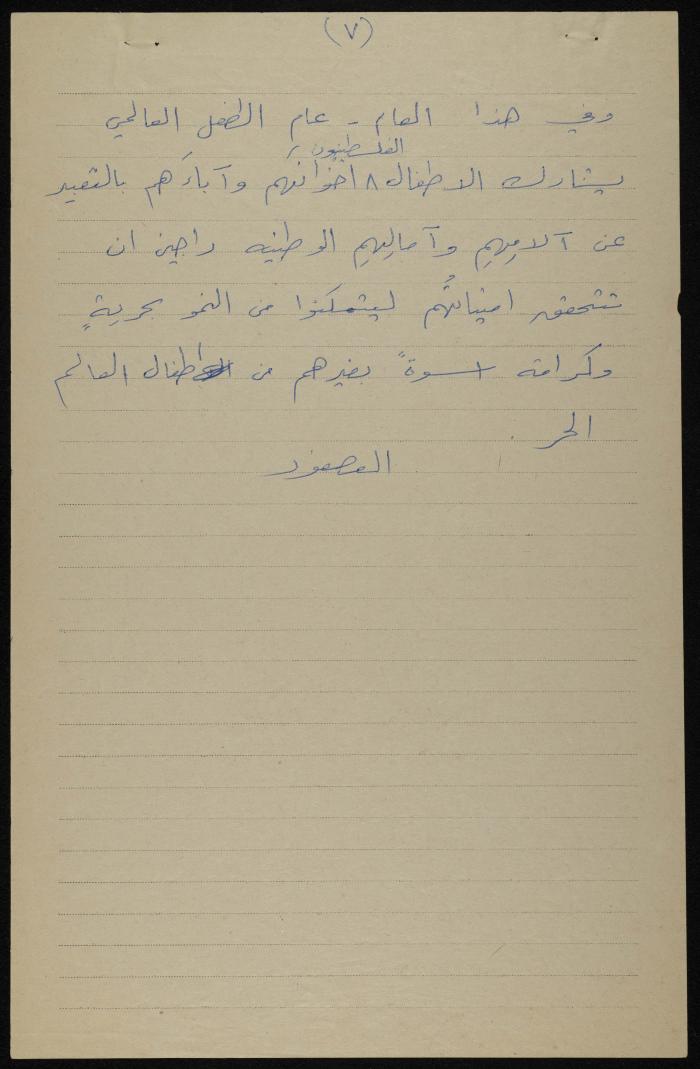 (٧)
وفي هذا العام - عام الطفل العالمي
الفلسطينيون
يشارك الاطفال ٨ أخوانَهم وآباءَهم بالتعبير
عن آلامِهِم وآمالِهِم الوطنيه راجين ان
تتحقق امنياتُهُم ليتمكنوا من النمو بحريةٍ
وكرامة اسوةً بغيرهم من اطفال العالم
الحر .